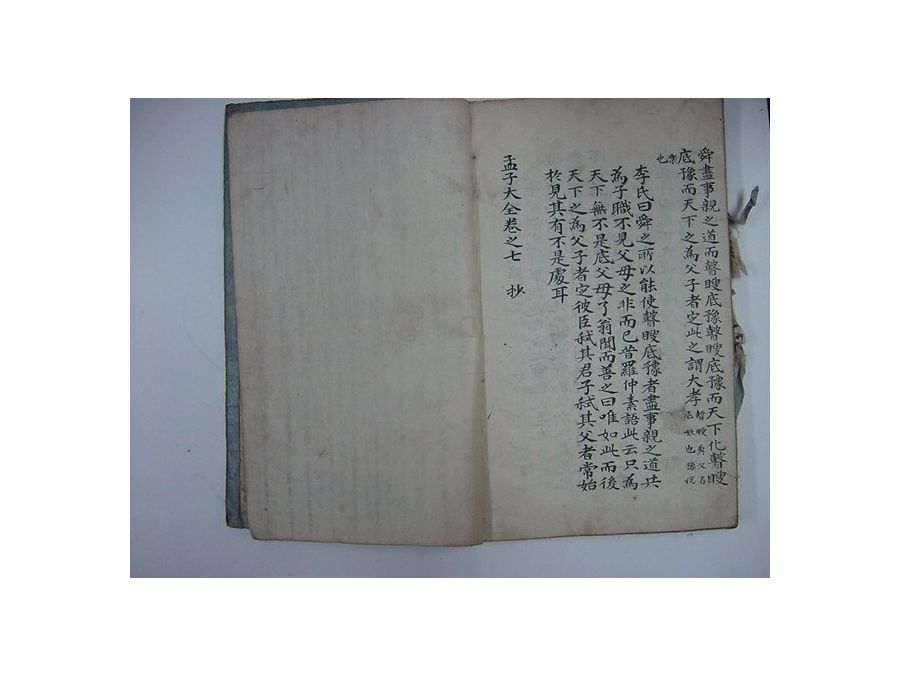 舜盡事親之道而瞽瞍底豫瞽瞍底豫而天下化瞽瞍
底豫而天下之為父子者定此之謂大孝瞽瞍舜父名底致也豫悅
樂也
李氏曰舜之所以能使瞽瞍底豫者盡事親之道共
為子職不見父母之非而已昔羅仲素語此云只為
天下無不是底父母了翁聞而善之曰唯如此而後
天下之為父子者定彼臣弑其君子弑其父者常始
於見其有不是處耳
孟子大全卷之七 抄